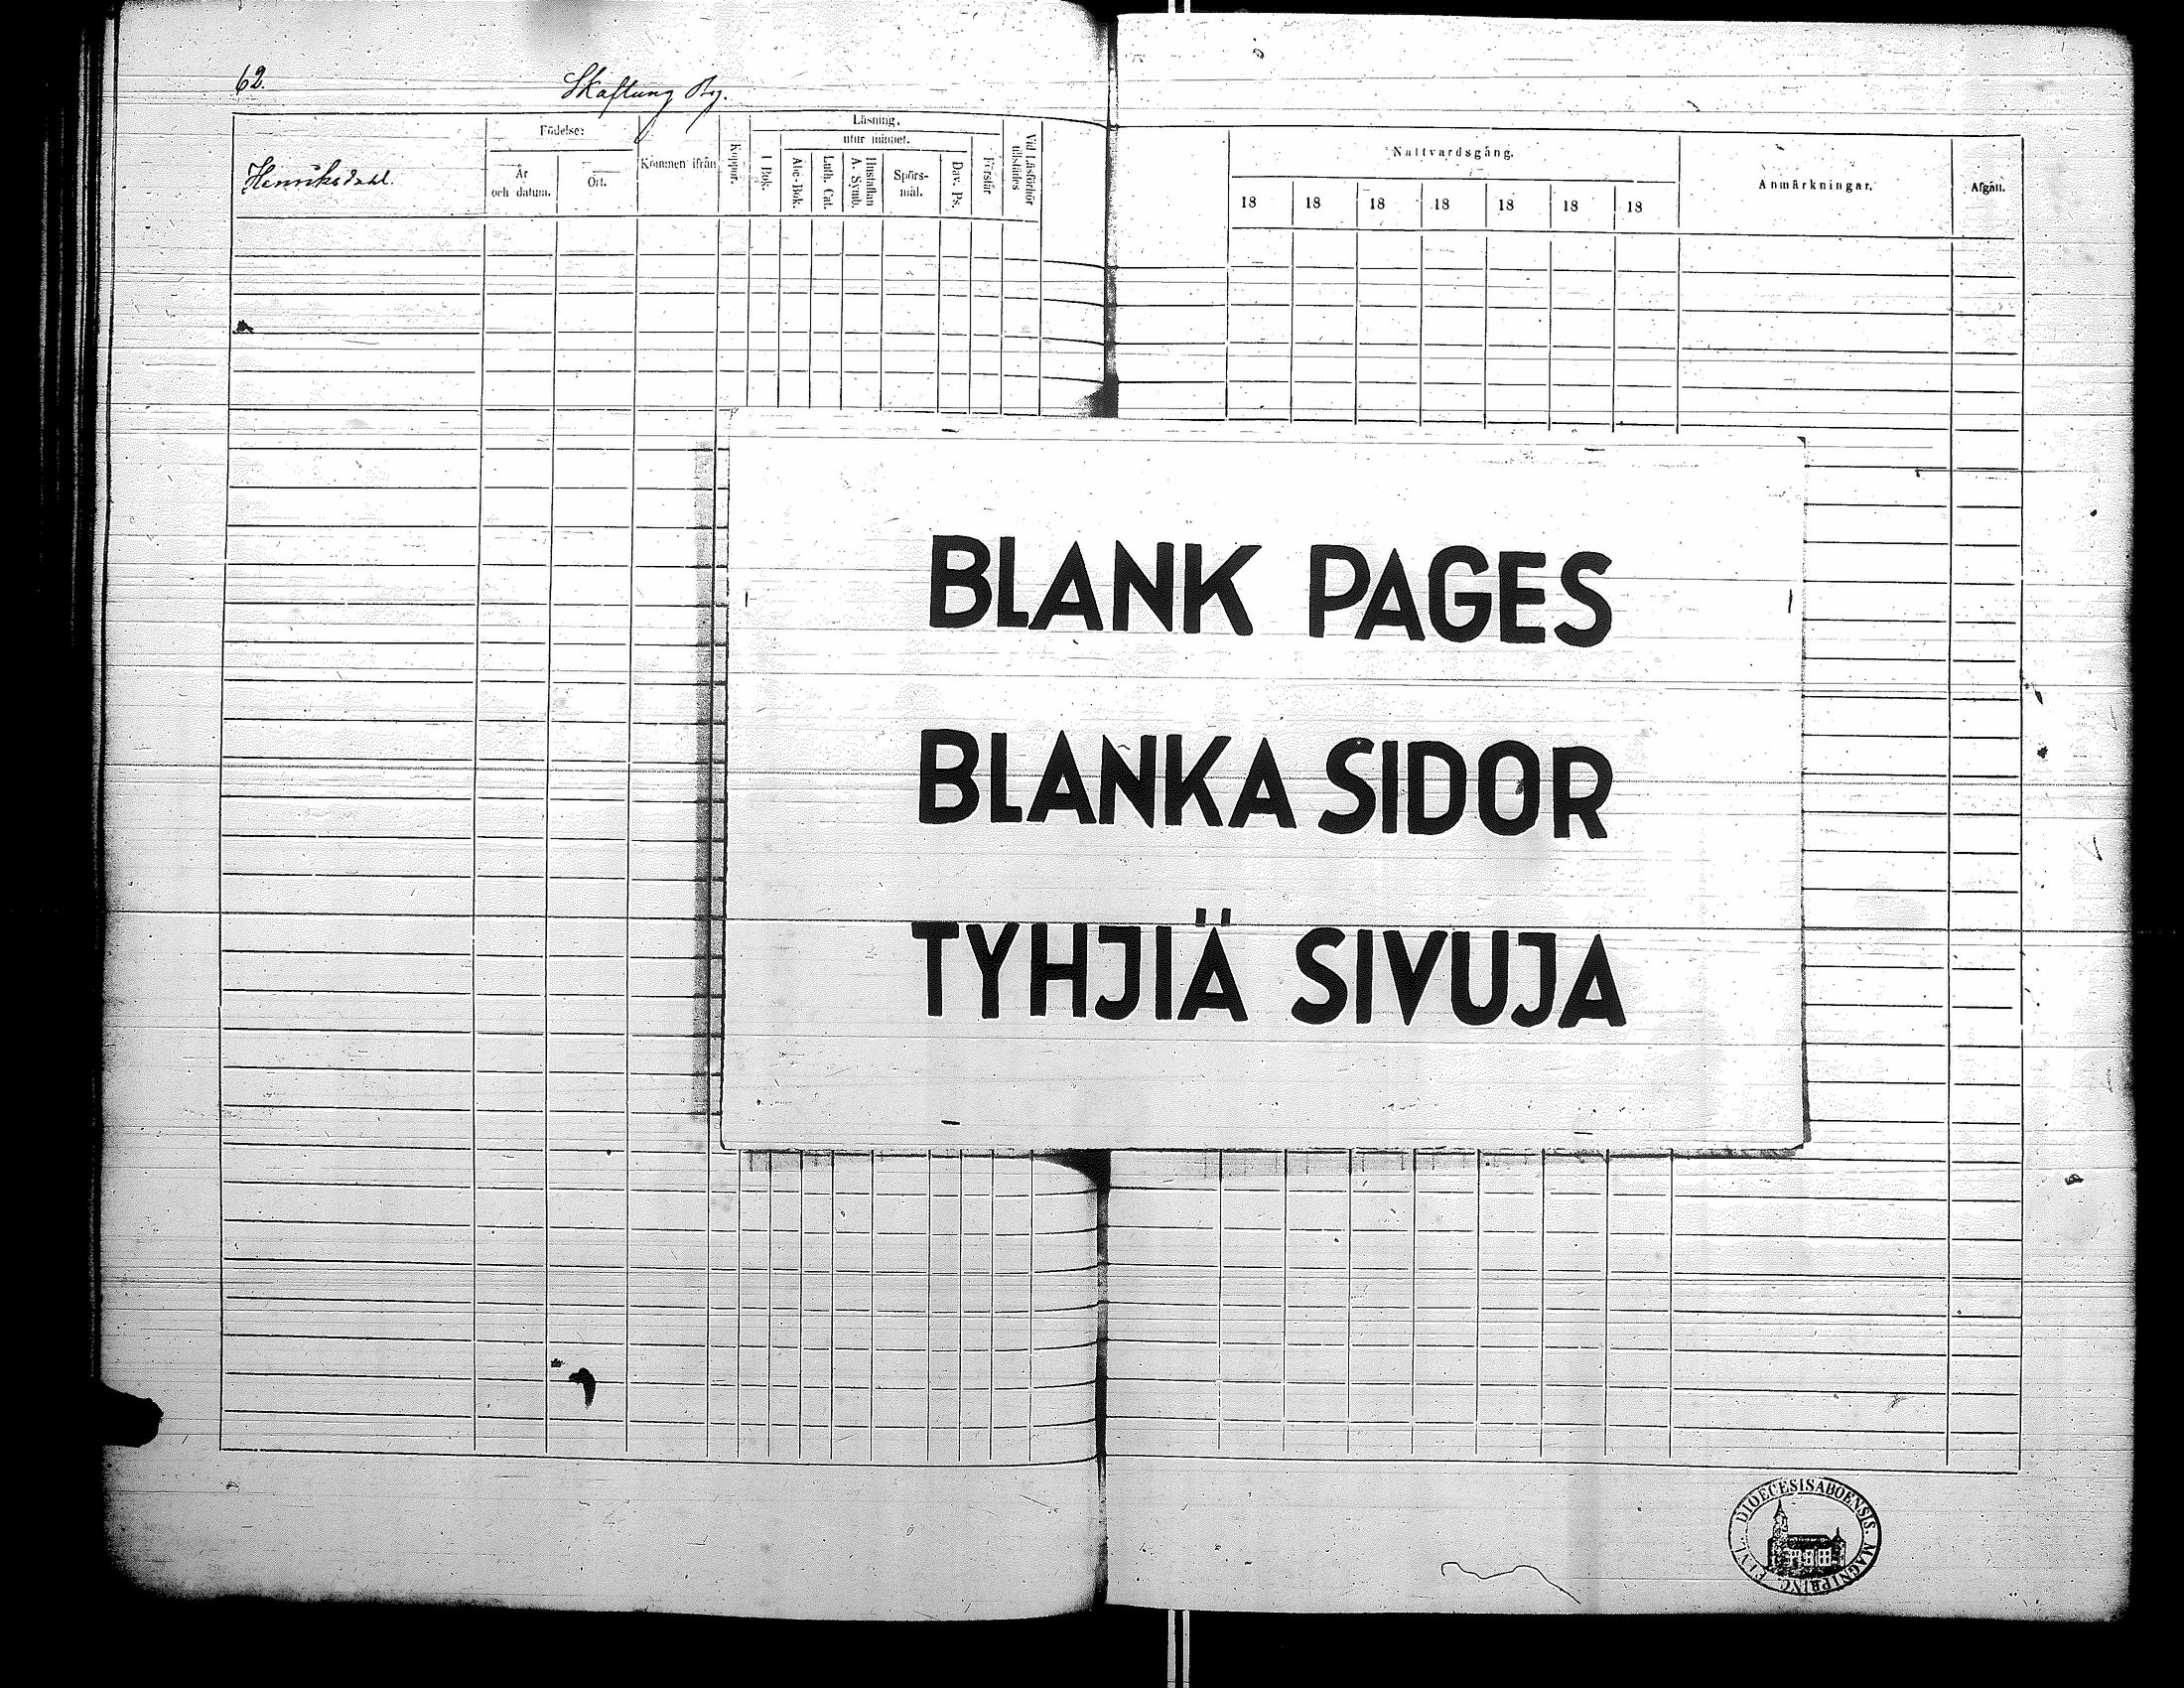 62.
Skaftung By.
Henriksdahl.
Födelse:
År
och datum.
Ort.
Kommen ifrån
Koppor.
Läsning,
utur minnet.
I Bok.
Abc-Bok.
Luth. Cat.
Hustaflan
A. Symb.
Spörs-
mål.
Dav. Ps.
Förstår
Vid Läsförhör
tillstädes
Nattvardsgång.
18 18 18 18 18 18 18
Anmärkningar.
Afgått.
BLANK PAGES
BLANKA SIDOR
TYHJIÄ SIVUJA
DIOECESIS ABOENSIS. MAGNI PRINC. FINL.